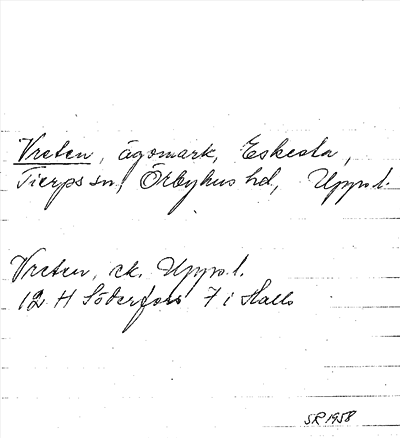 Vreten, ägomark, Eskesta,
Tierps sn, Örbyhus hd, Uppl.
Vreten, ek. Uppl.
12 H Söderfors 7 i Halls
SR 1958